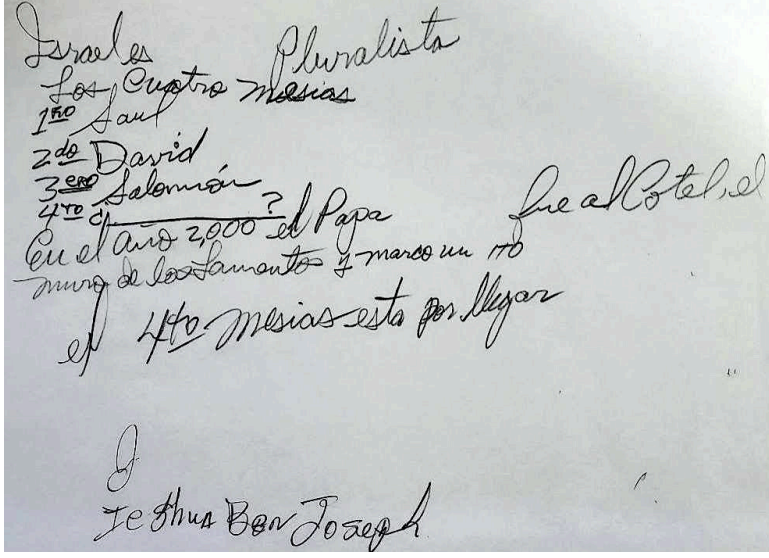 Israel es Pluralista
Los Cuatro mesias
1ro Saul
2do David
3ero Salomón
4to ¿________?
En el año 2,000 el Papa fue al Cotel, el
muro de los Lamentos y marco un ITO
el 4to mesias esta por llegar
Jeshua Ben Joseph